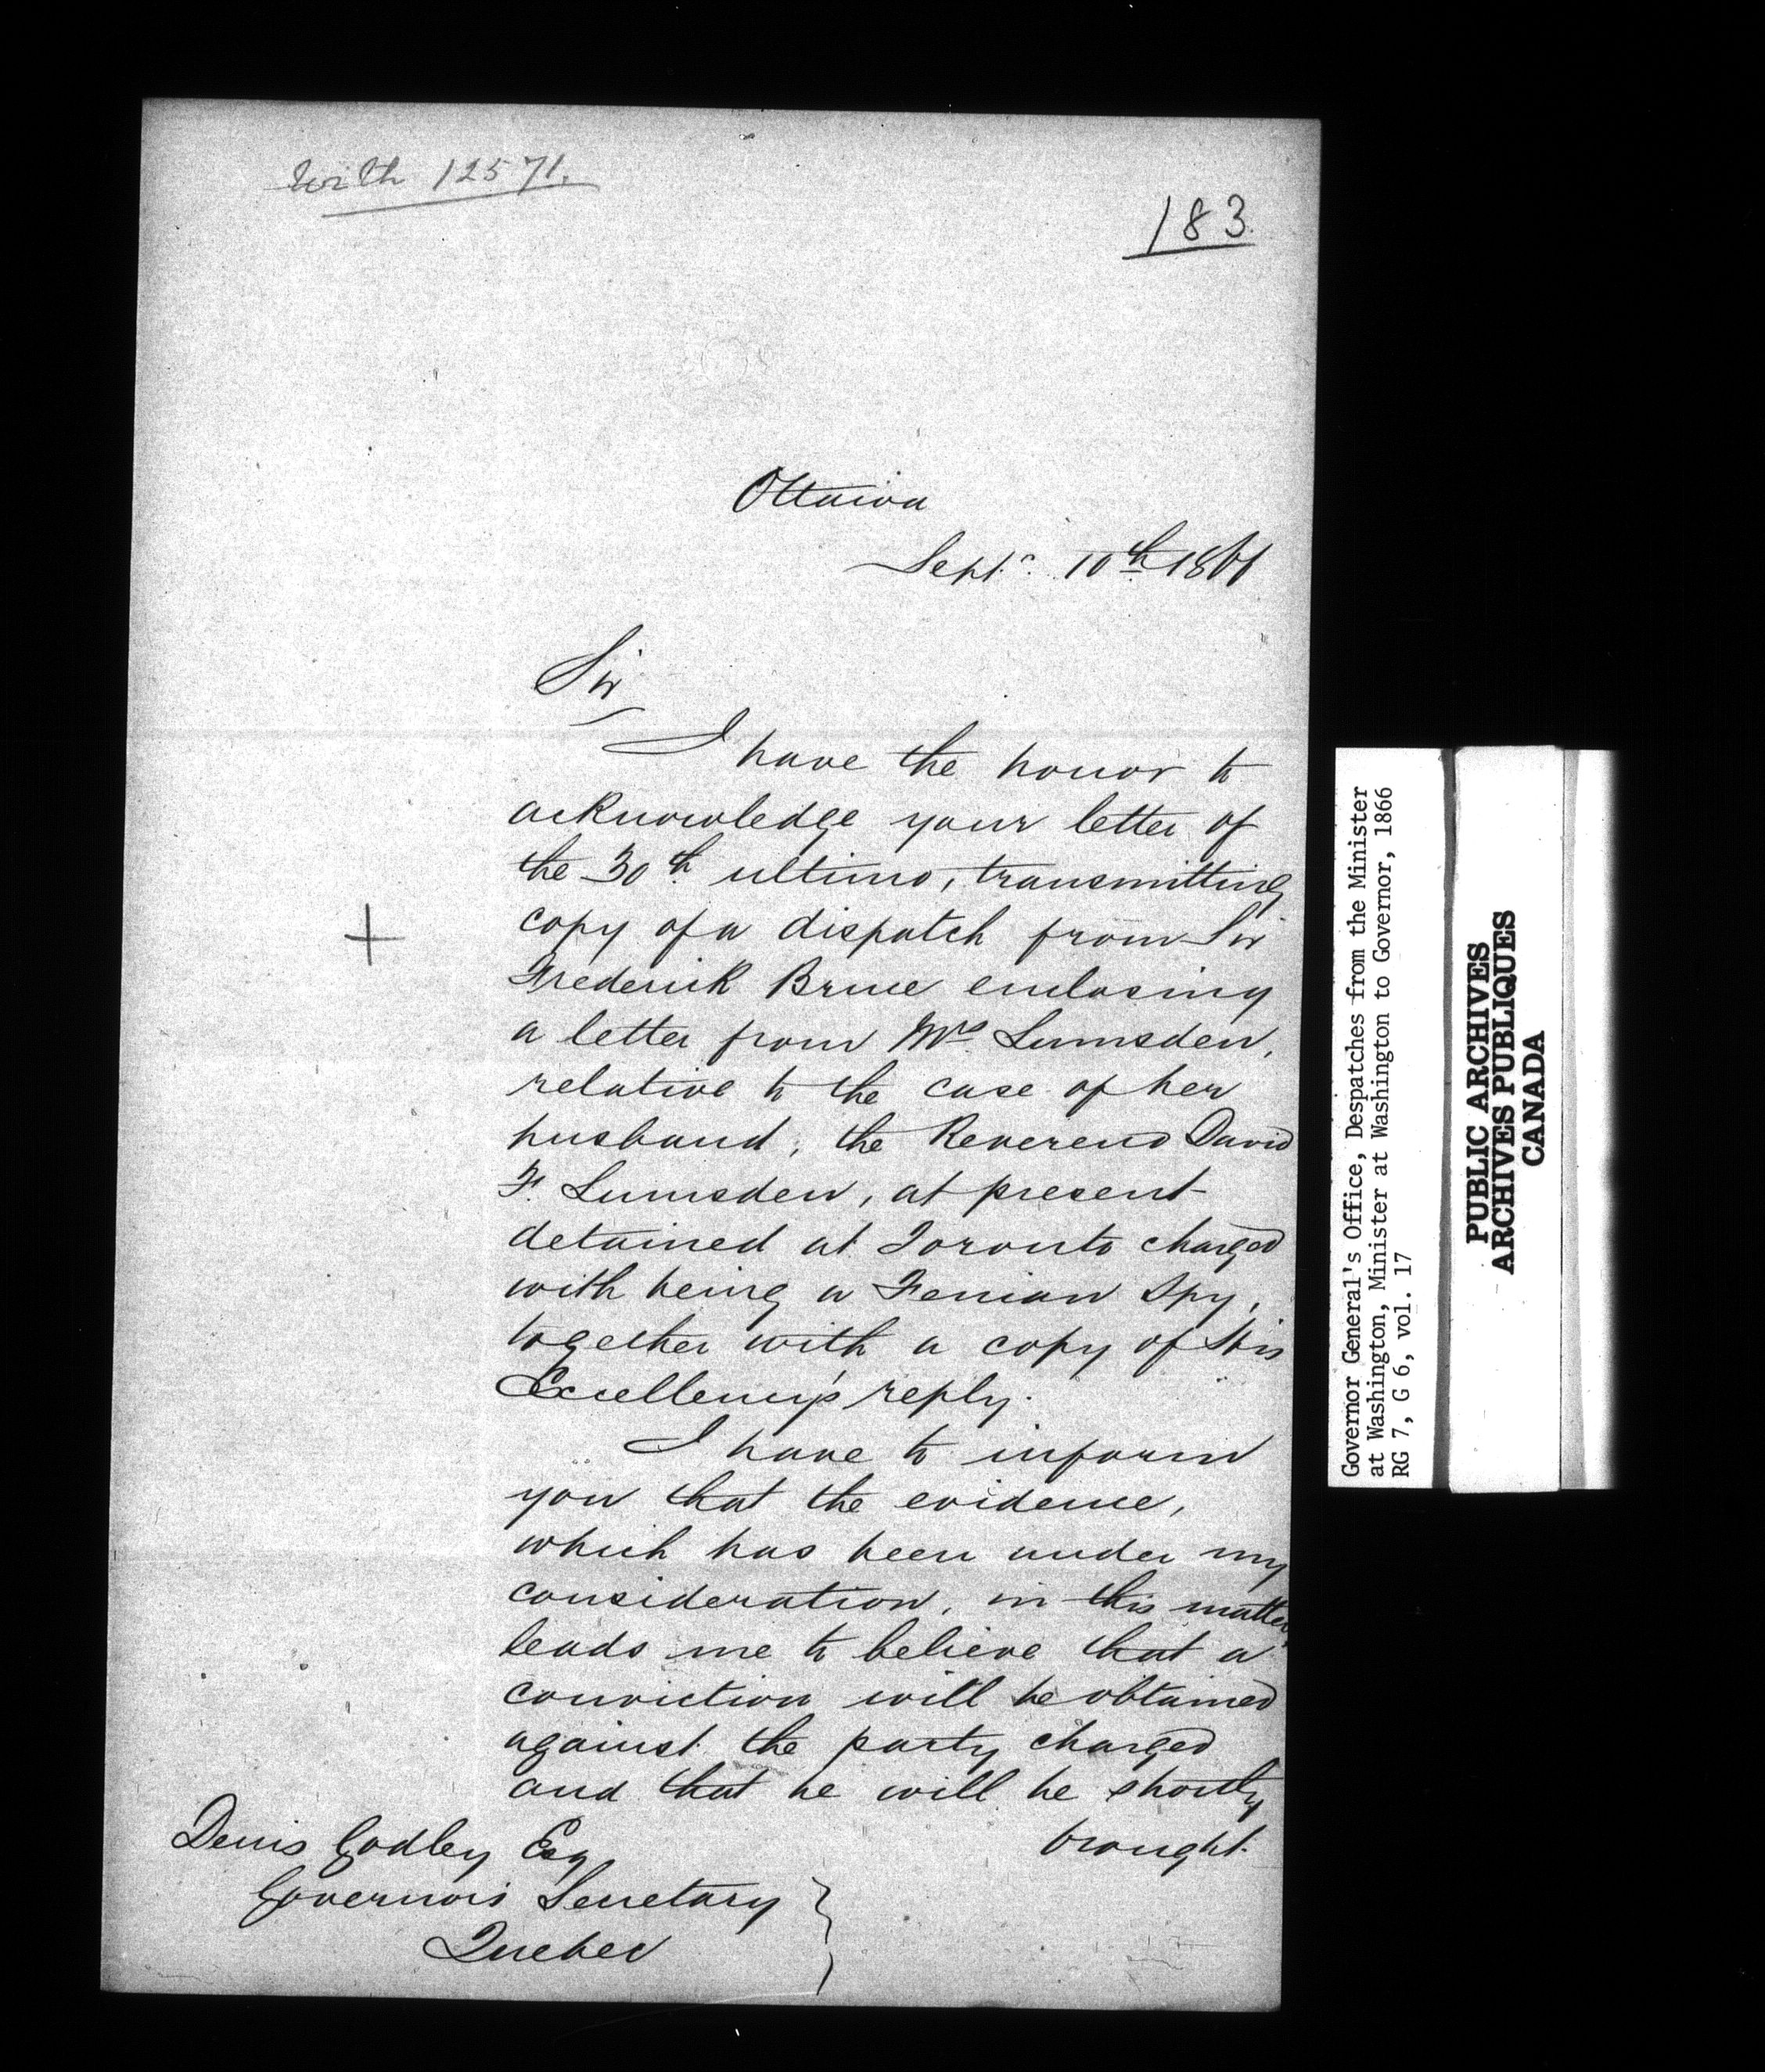 With 12571.
183.
Ottawa
Sept. 10th 1866
Sir
I have the honor to
acknowledge your letter of
the 30th ultimo, transmitting
copy of a dispatch from Sir
Frederick Bruce enclosing
a letter from Mrs Lumsden,
relative to the case of her
husband, the Reverend David
F. Lumsden, at present
detained at Toronto charged
with being a Fenian Spy,
together with a copy of His
Excellency's reply.
I have to inform
you that the evidence,
which has been under my
consideration, in this matter,
leads me to believe that a
conviction will be obtained
against the party charged
and that he will be shortly
brought
Denis Godley Esq
Governor's Secretary
Quebec
Governor General's Office, Despatches from the Minister
at Washington, Minister at Washington to Governor, 1866
RG 7, G 6, vol. 17
PUBLIC ARCHIVES
ARCHIVES PUBLIQUES
CANADA